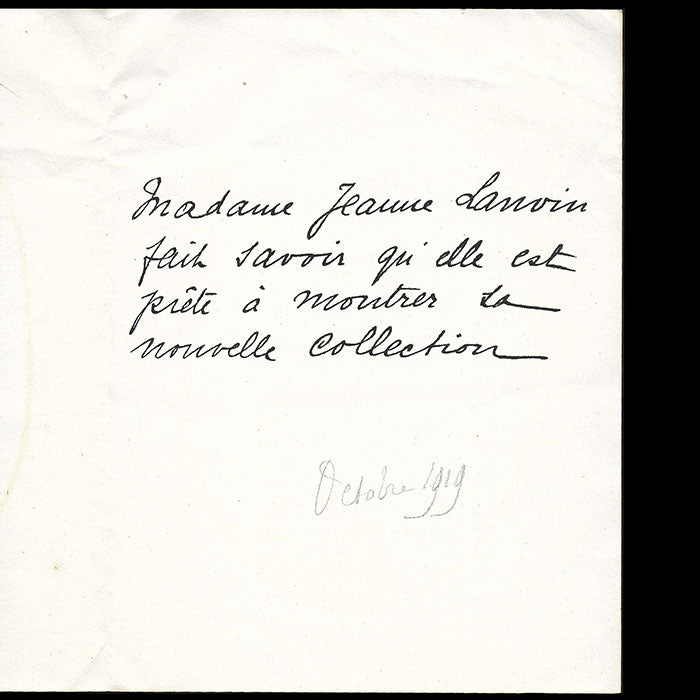 Madame Jeanne Lanvin
fait savoir qu'elle est
prête à montrer sa
nouvelle collection
Octobre 1919